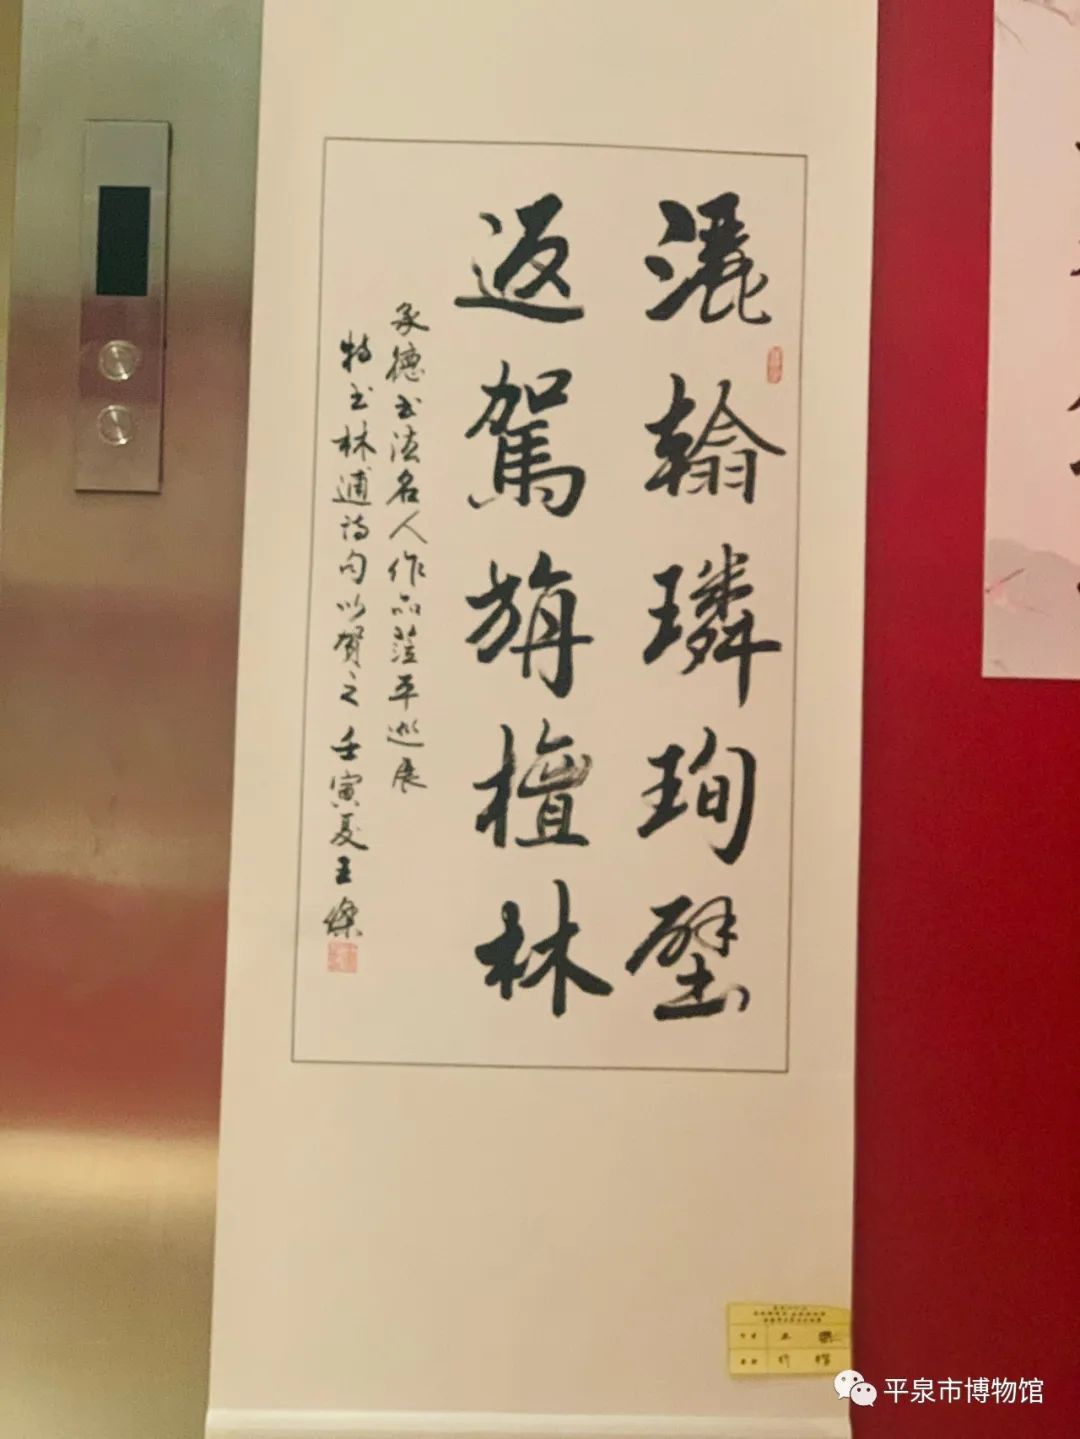 灑翰璘珣壁
返駕旃檀林
承德书法名人作品莅平巡展
特书林逋诗句以贺之 壬寅夏王
平泉市博物馆